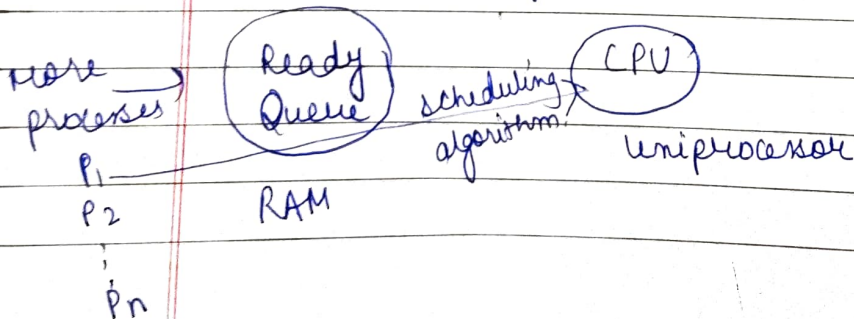 More processes
Ready Queue
scheduling algorithm
CPU
Uniprocessor
P1
P2
RAM
Pn